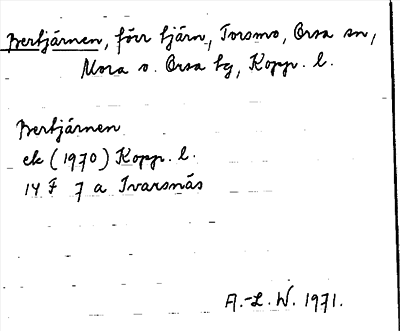 Bertjärnen, förr tjärn, Torsmo, Orsa sn,
Mora o. Orsa tg, Kopp. l.
Bertjärnen
ek (1970) Kopp. l.
14 F 7 a Ivarsnäs
A.-L. W. 1971.